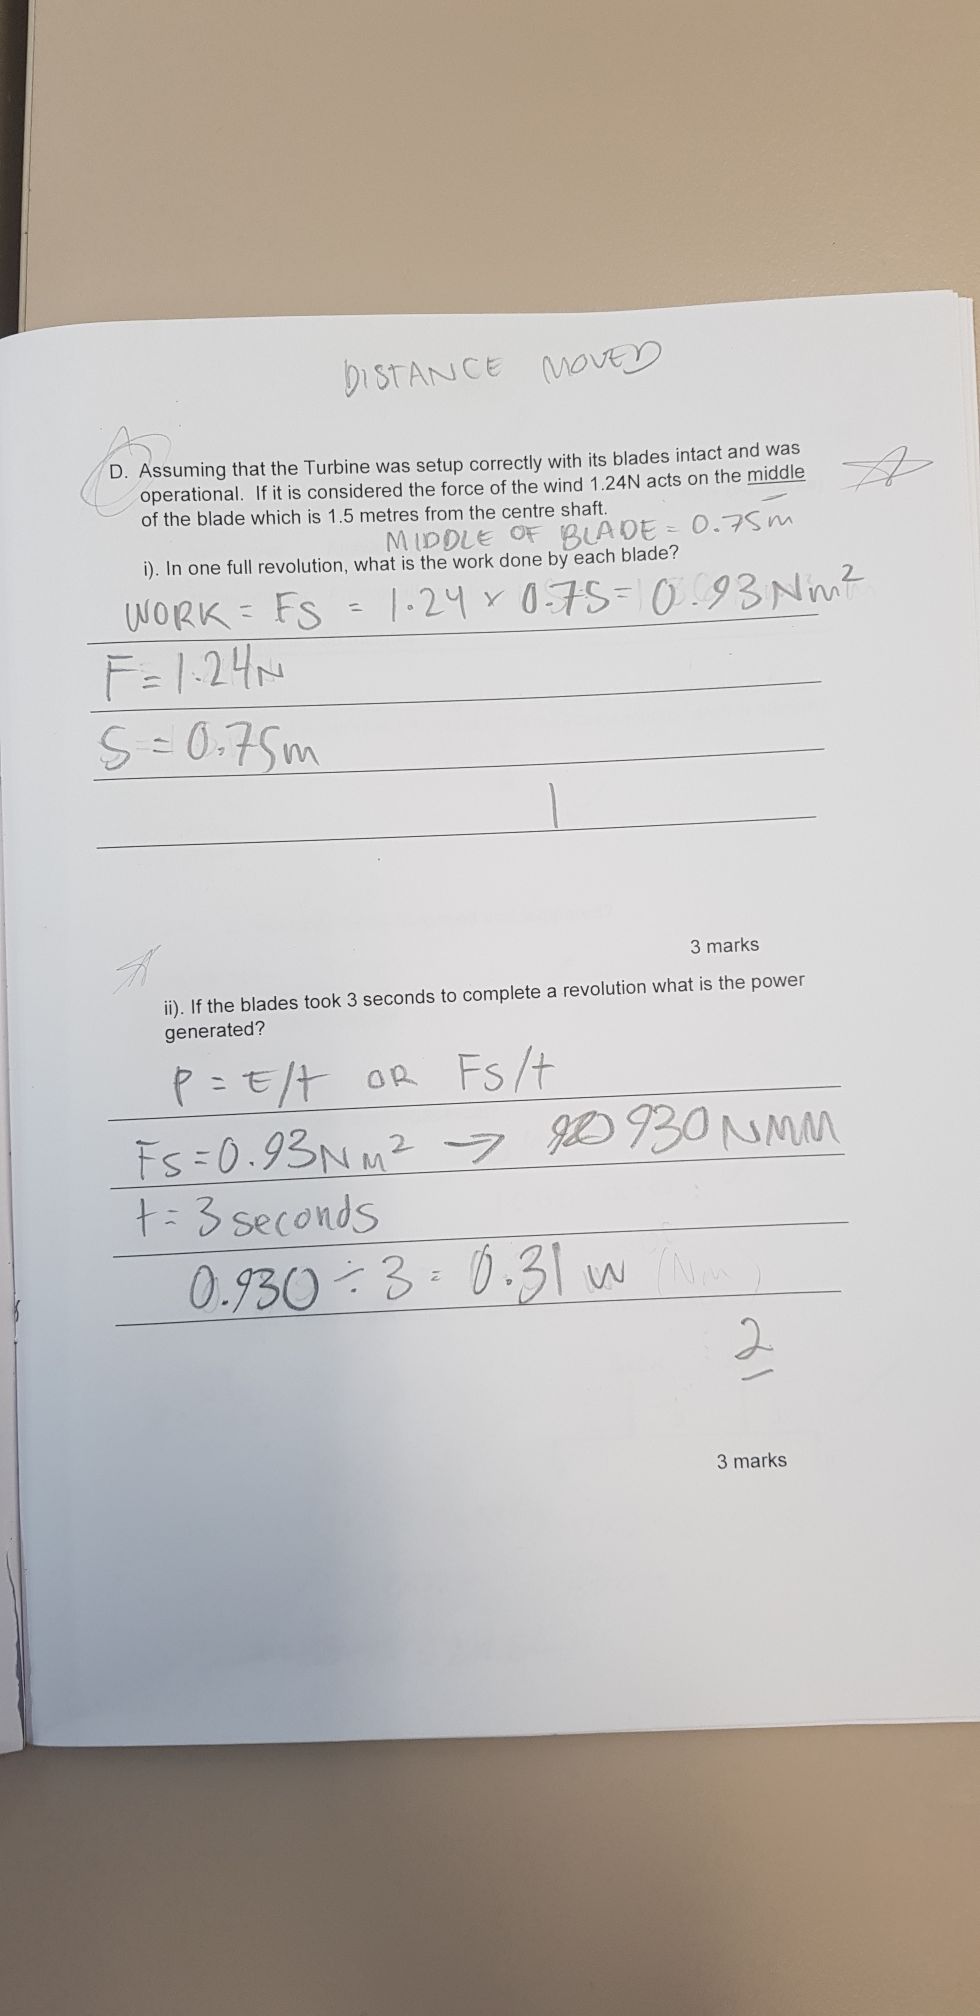 DISTANCE MOVED
D. Assuming that the Turbine was setup correctly with its blades intact and was
operational. If it is considered the force of the wind 1.24N acts on the middle
of the blade which is 1.5 metres from the centre shaft.
MIDDLE OF BLADE = 0.75m
i). In one full revolution, what is the work done by each blade?
WORK = FS = 1.24 x 0.75 = 0.93 Nm²
F = 1.24N
S = 0.75m
1
3 marks
ii). If the blades took 3 seconds to complete a revolution what is the power
generated?
P = E/t OR FS/t
FS = 0.93Nm² → 930 NMM
t = 3 seconds
0.930 ÷ 3 = 0.31 W (Nm)
2
3 marks